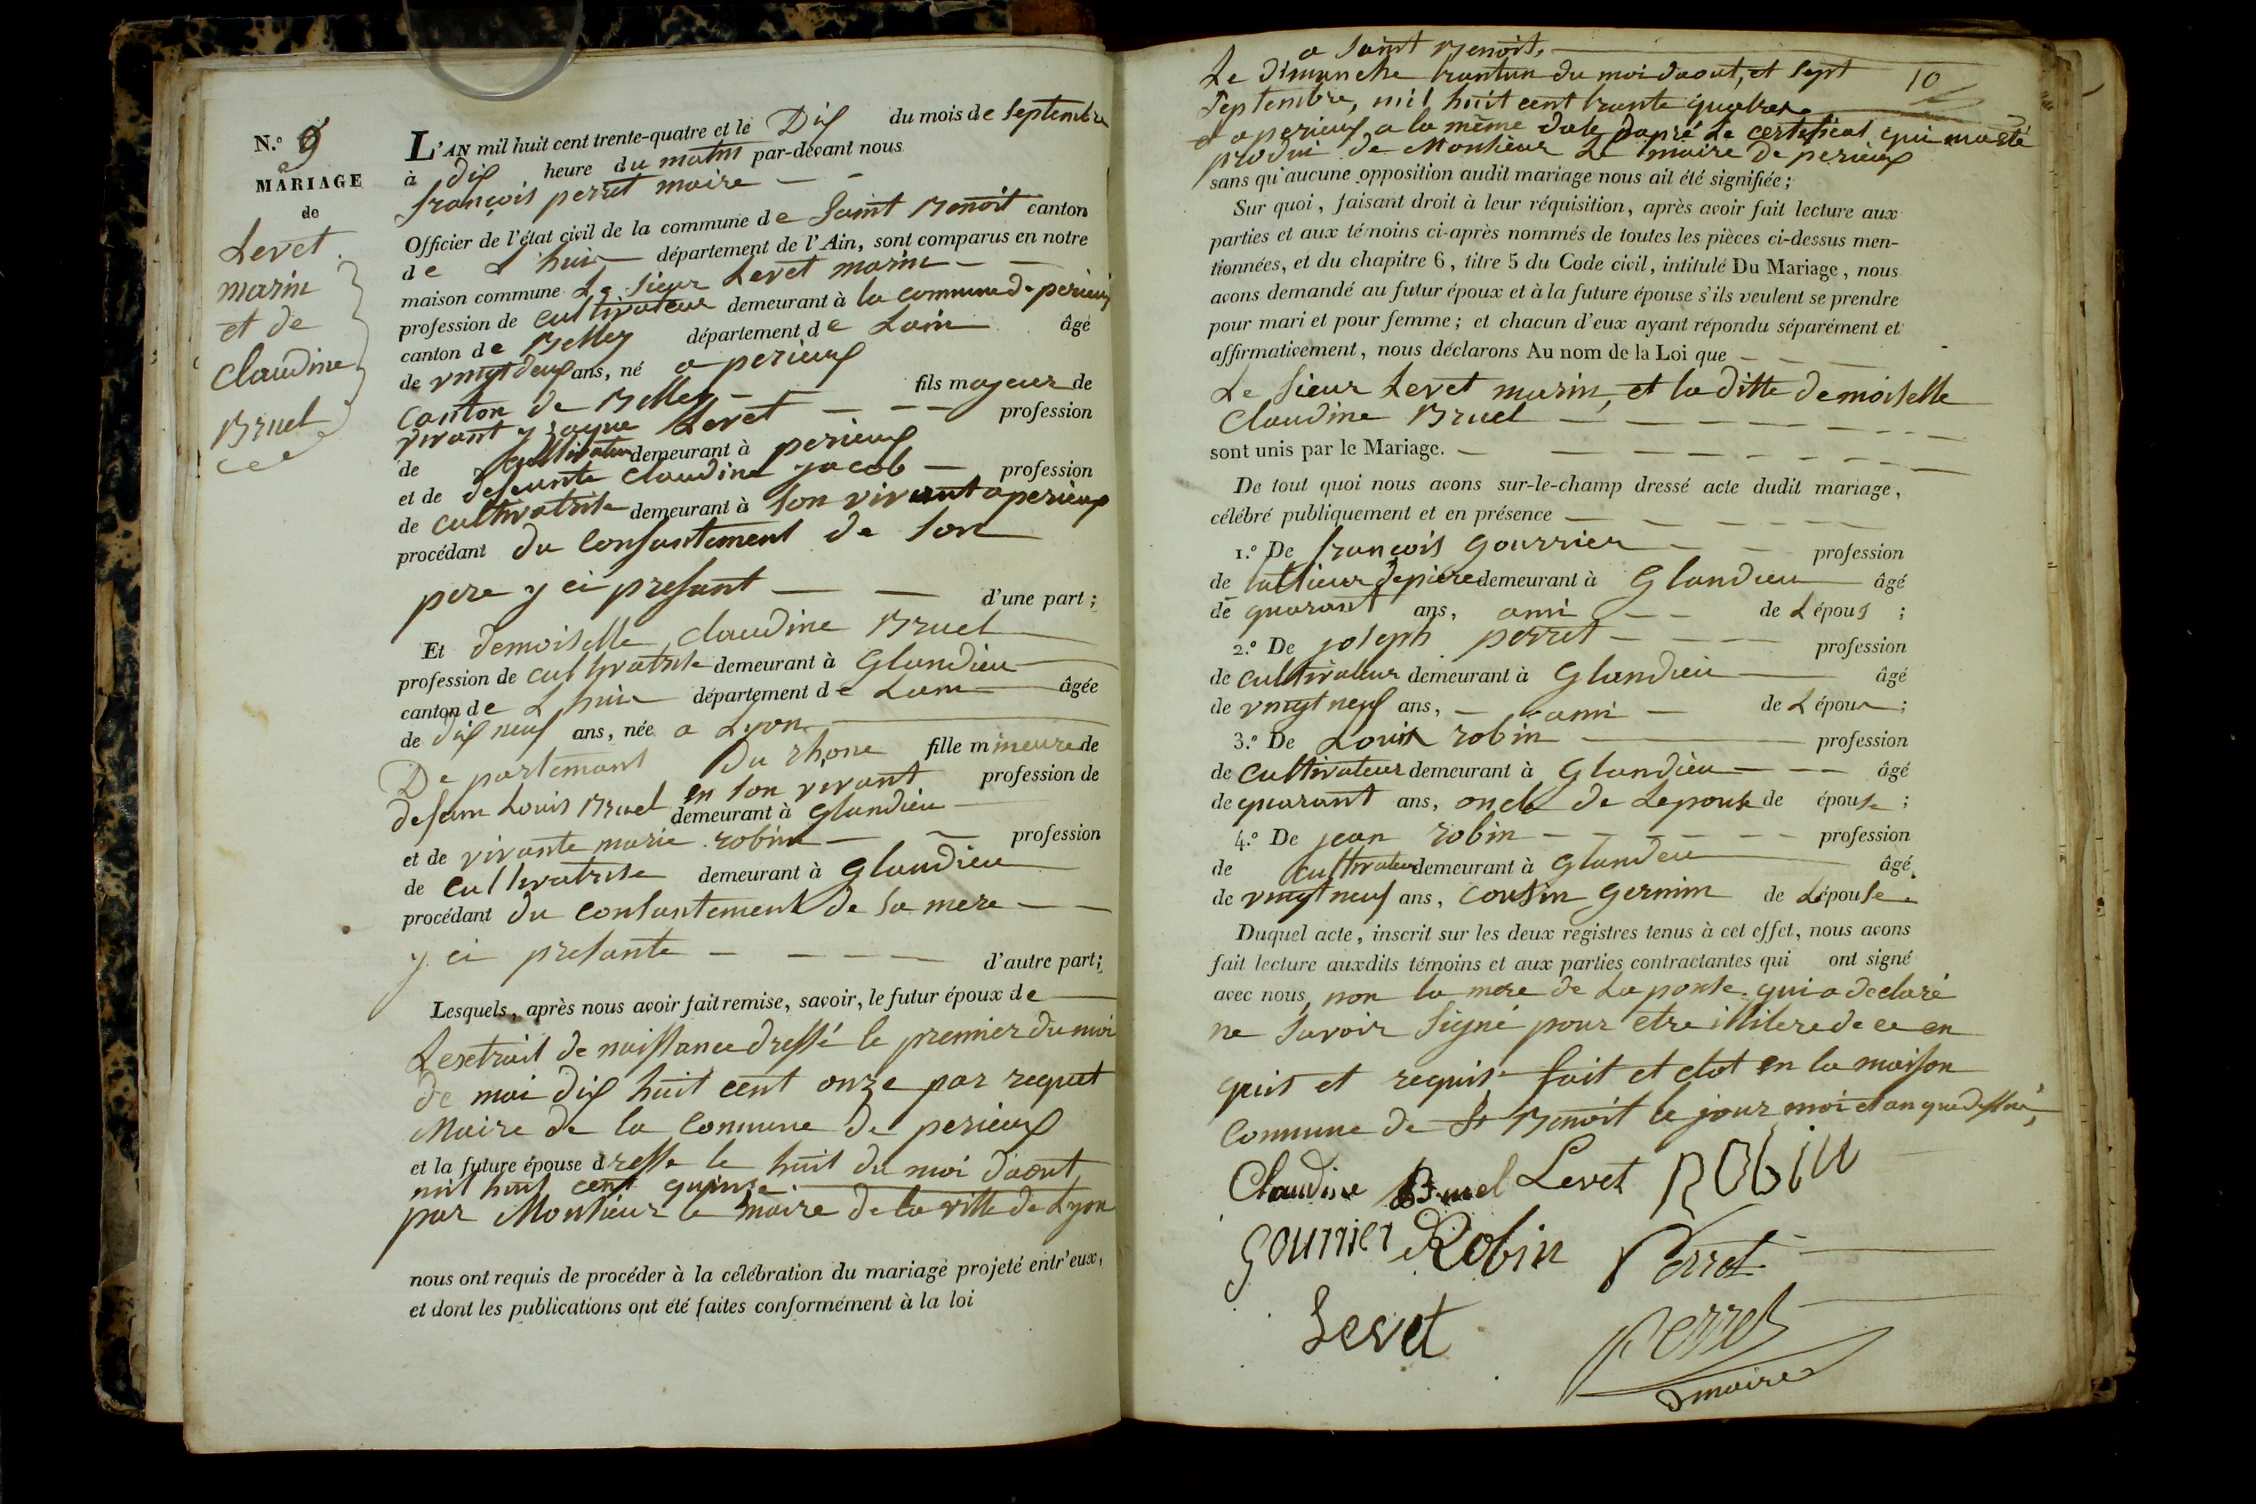 N.º 9
MARIAGE
de
Levet
marin
et de
Claudine
Bruel
L'AN mil huit cent trente-quatre et le Dix du mois de septembre
à dix heure du matin par-devant nous
françois perret maire
Officier de l'état civil de la commune de saint Benoit canton
de L'huis département de l'Ain, sont comparus en notre
maison commune Le sieur Levet marin
profession de cultivateur demeurant à la commune de perieux
canton de Belley département de Lain âgé
de vingt deux ans, né a perieux
canton de Belley fils majeur de
vivant Levet profession
de cultivateur demeurant à perieux
et de defeunte Claudine jacob profession
de cultivatrise demeurant à son vivant a perieux
procédant du consantement de son
pere y ci presant d'une part;
Et demoiselle Claudine Bruel
profession de cultivatrise demeurant à Glandieu
canton de L'huis département de Lain âgée
de dix neuf ans, née a Lyon
Departemant du rhone fille mineure de
defam Louis Bruel en son vivant profession de
demeurant à Glandieu
et de vivante marie robin profession
de cultivatrise demeurant à Glandieu
procédant du consantement de sa mere
y ci presante d'autre part;
Lesquels, après nous avoir fait remise, savoir, le futur époux de
Lextrait de naissance dressé le premier du moi
de mai dix huit cent onze par requet
Maire de la commune de perieux
et la future épouse dresse le huit du moi daout
mil huit cent quinse
par Monsieur le maire de la ville de Lyon
nous ont requis de procéder à la célébration du mariage projeté entr'eux,
et dont les publications ont été faites conformément à la loi
a saint Benoit
Le Dimanche trantun du moi daout, et sept 10
septembre, mil huit cent trante quatre
et a perieux a la même date dapré Le certificat qui ma eté
produi de Monsieur Le maire de perieux
sans qu'aucune opposition audit mariage nous ait été signifiée;
Sur quoi, faisant droit à leur réquisition, après avoir fait lecture aux
parties et aux témoins ci-après nommés de toutes les pièces ci-dessus men-
tionnées, et du chapitre 6, titre 5 du Code civil, intitulé Du Mariage, nous
avons demandé au futur époux et à la future épouse s'ils veulent se prendre
pour mari et pour femme; et chacun d'eux ayant répondu séparément et
affirmativement, nous déclarons Au nom de la Loi que
Le sieur Levet marin, et la ditte demoiselle
Claudine Bruel
sont unis par le Mariage.
De tout quoi nous avons sur-le-champ dressé acte dudit mariage,
célébré publiquement et en présence
1.º De françois gourrier profession
de tallieur de piere demeurant à Glandieu âgé
de quarant ans, ami de L époux ;
2.º De joseph perret profession
de cultivateur demeurant à Glandieu âgé
de vingt neuf ans, ami de L époux ;
3.º De Louis robin profession
de cultivateur demeurant à Glandieu âgé
de quarant ans, oncle de Lepouse de épouse ;
4.º De jean robin profession
de cultivateur demeurant à Glandieu âgé
de vingt neuf ans, cousin germin de L épouse.
Duquel acte, inscrit sur les deux registres tenus à cet effet, nous avons
fait lecture auxdits témoins et aux parties contractantes qui ont signé
avec nous, non la mere de Lapouse qui a declaré
ne savoir signé pour etre illitere de ce en
quis et requis fait et clot en la maison
commune de St Benoit le jour, moi et an que dessus,
Claudine Bruel Levet Robin
gourrier Robin Perret
Levet
Perret
maire